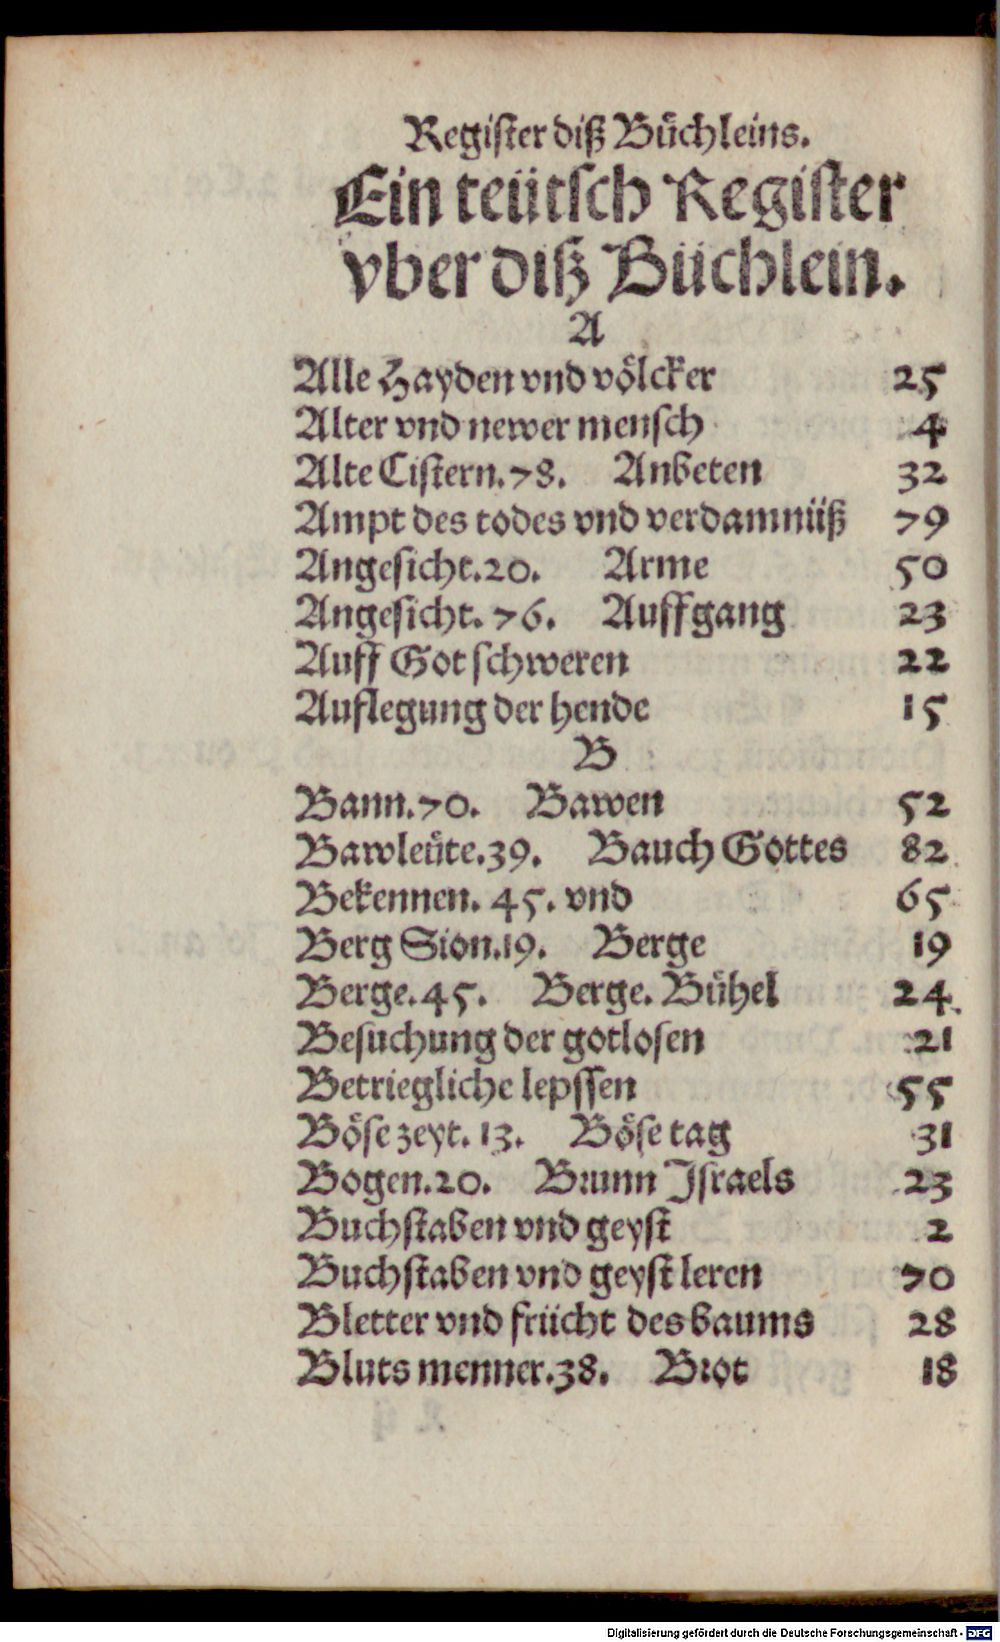 Register diß Büchleins.
Ein teütsch Register
vber diß Büchlein.
A
Alle Hayden vnd völcker 25
Alter vnd newer mensch 4
Alte Cistern. 78. Anbeten 32
Ampt des todes vnd verdamnüß 79
Angesicht. 20. Arme 50
Angesicht. 76. Auffgang 23
Auff Got schweren 22
Auflegung der hende 15
B
Bann. 70. Bawen 52
Bawleüte. 39. Bauch Gottes 82
Bekennen. 45. vnd 65
Berg Sion. 19. Berge 19
Berge. 45. Berge. Bühel 24
Besuchung der gotlosen 21
Betriegliche lepssen 55
Böse zeyt. 13. Böse tag 31
Bogen. 20. Brunn Israels 23
Buchstaben vnd geyst 2
Buchstaben vnd geyst leren 70
Bletter vnd frücht des baums 28
Bluts menner. 38. Brot 18
Digitalisierung gefördert durch die Deutsche Forschungsgemeinschaft - DFG